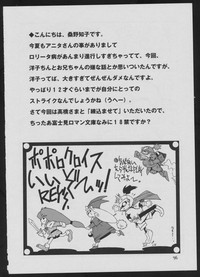 ◆こんにちは、桑野知子です。
今夏もアニタさんの事がありまして
ロリータ病があんまり進行しすぎちゃってて、今回、
洋子ちんとお兄ちゃんの嫌な話とか思いついたんですが、
洋子ってば、大きすぎてぜんぜんダメなんですよ。
やっぱり12才ぐらいまでが自分にとっての
ストライクなんでしょうかね(うへー)。
さて今回は高橋さまと「絡込ませて」いただいたので、
ちったあ富士見ロマン文庫なみに18禁ですか?
ポポロクロイス
いいゲームッ!
96